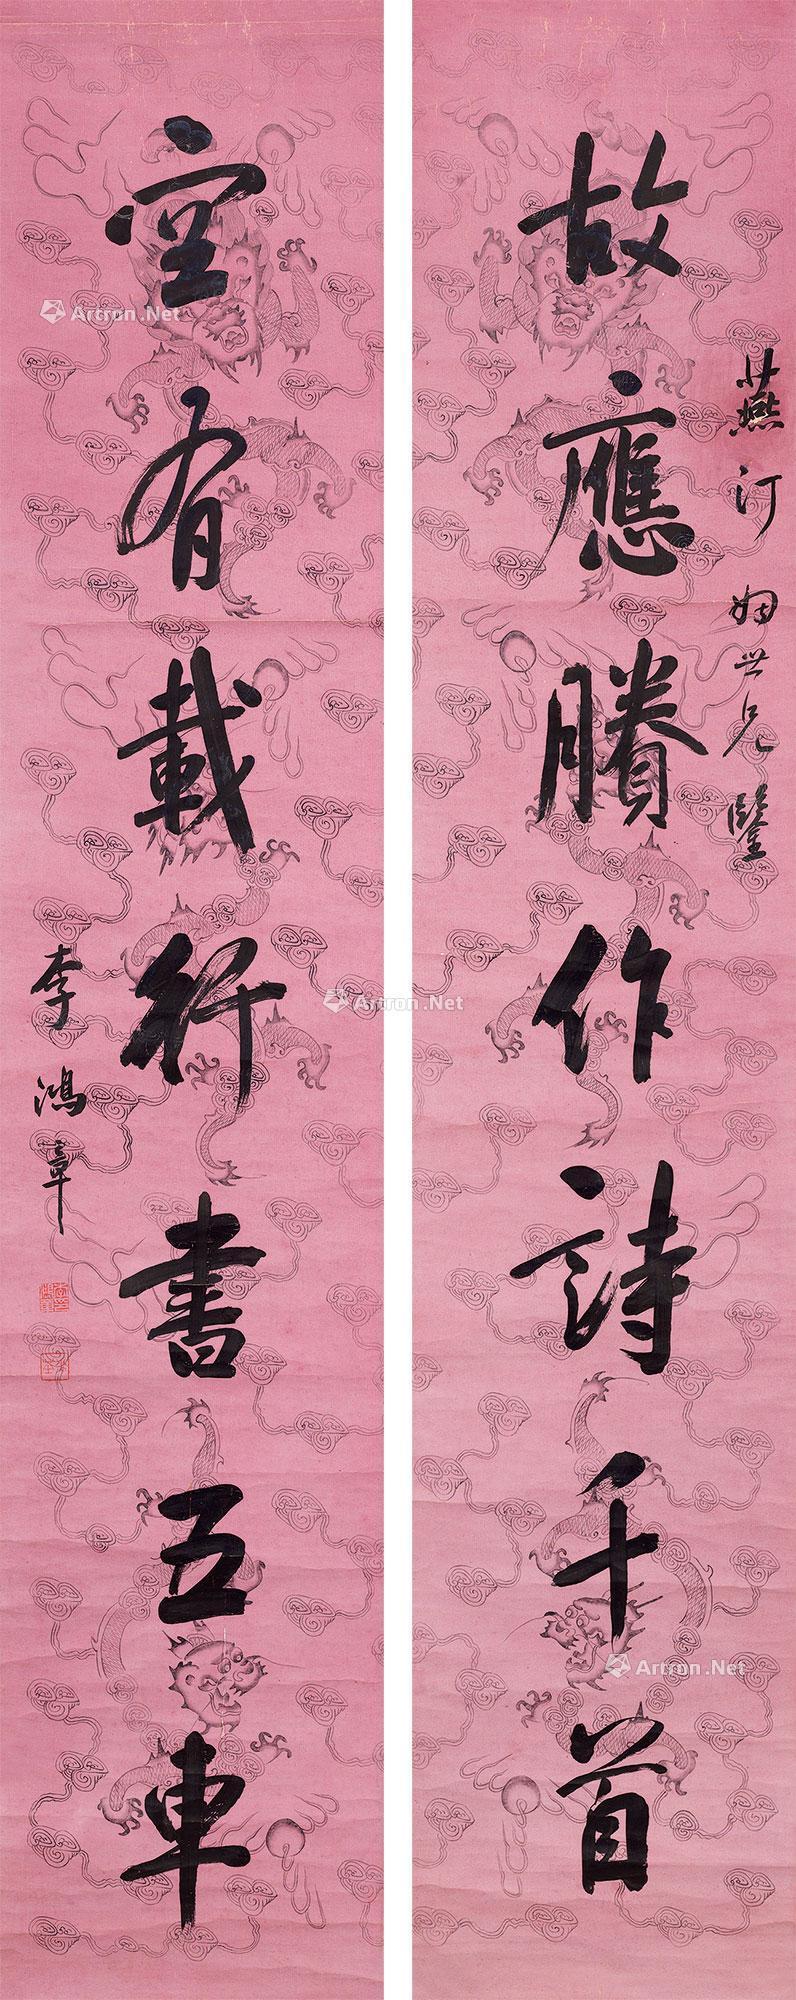 燕汀姻世兄鑒
故應賸作詩千首
空有載行書五車
李鴻章
Artron.Net
Artron.Net
Artron.Net